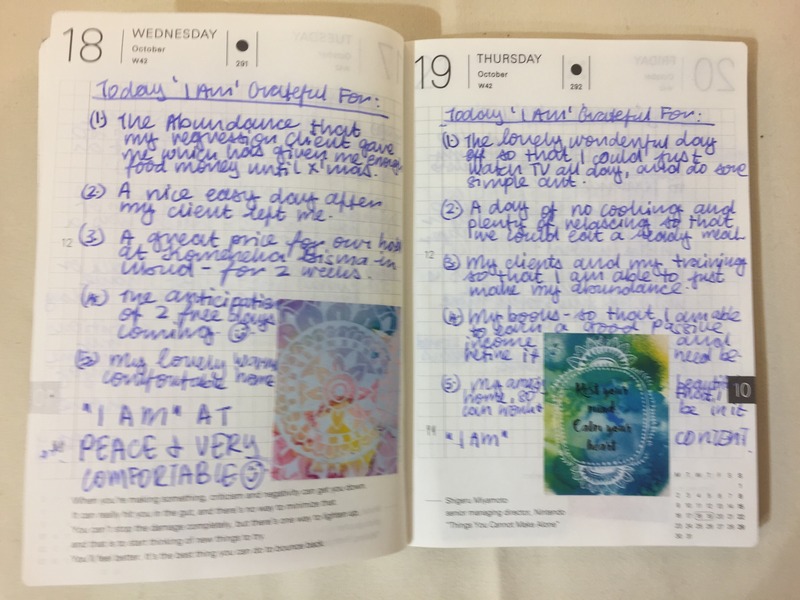 18
WEDNESDAY
October
W43
291
Today 'I Am' Grateful For:
(1) The Abundance that
my regression client gave
me which has given me enough
food money until x'mas.
(2) A nice easy day after
my client left me.
(3) A great price for our
at Bisma in
Ubud - for 2 weeks.
12
(4) The anticipation
of 2 free days
coming
(5) My lovely warm
comfortable home
"I AM" AT
PEACE & VERY
COMFORTABLE
When you're making something, criticism and negativity can get you down.
It can really hit you in the gut, and there's no way to minimize that.
You can't stop the damage completely, but there's one way to lighten up,
and that is to start thinking of new things to try.
You'll feel better. It's the best thing you can do to bounce back.
19
THURSDAY
October
W42
292
Today 'I Am' Grateful For:
(1) The lovely wonderful day
off so that I could just
watch TV all day, and do some
simple art.
(2) A day of no cooking and
plenty of relaxing so that
we could eat a ready meal
12
(3) My clients and my training
so that I am able to just
make my abundance.
(4) My books - so that I am able
to earn a good passive
income and
retire if need be
(5) my beautiful
home, so that I
can be in it
10
"I AM" CONTENT
Rest your
mind
Calm your
heart
Shigeru Miyamoto
senior managing director, Nintendo
"Things You Cannot Make Alone"
M T W T F S S
1
2 3 4 5 6 7 8
9 10 11 12 13 14 15
16 17 18 19 20 21 22
23 24 25 26 27 28 29
30 31